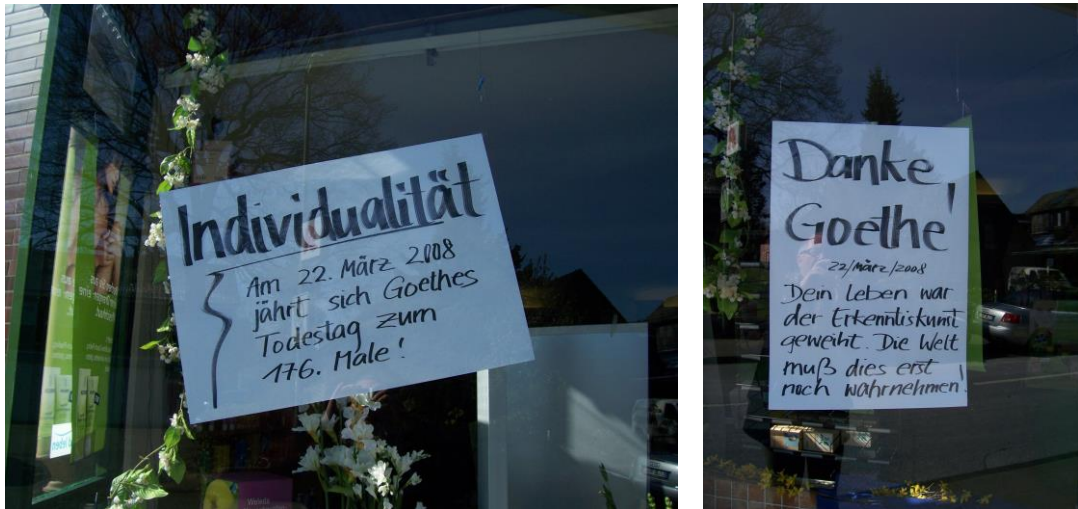 Individualität
Am 22. März 2008
jährt sich Goethes
Todestag zum
176. Male!
Weleda
Danke,
Goethe!
22/März/2008
Dein Leben war
der Erkenntiskunst
geweiht. Die Welt
muß dies erst
noch wahrnehmen!